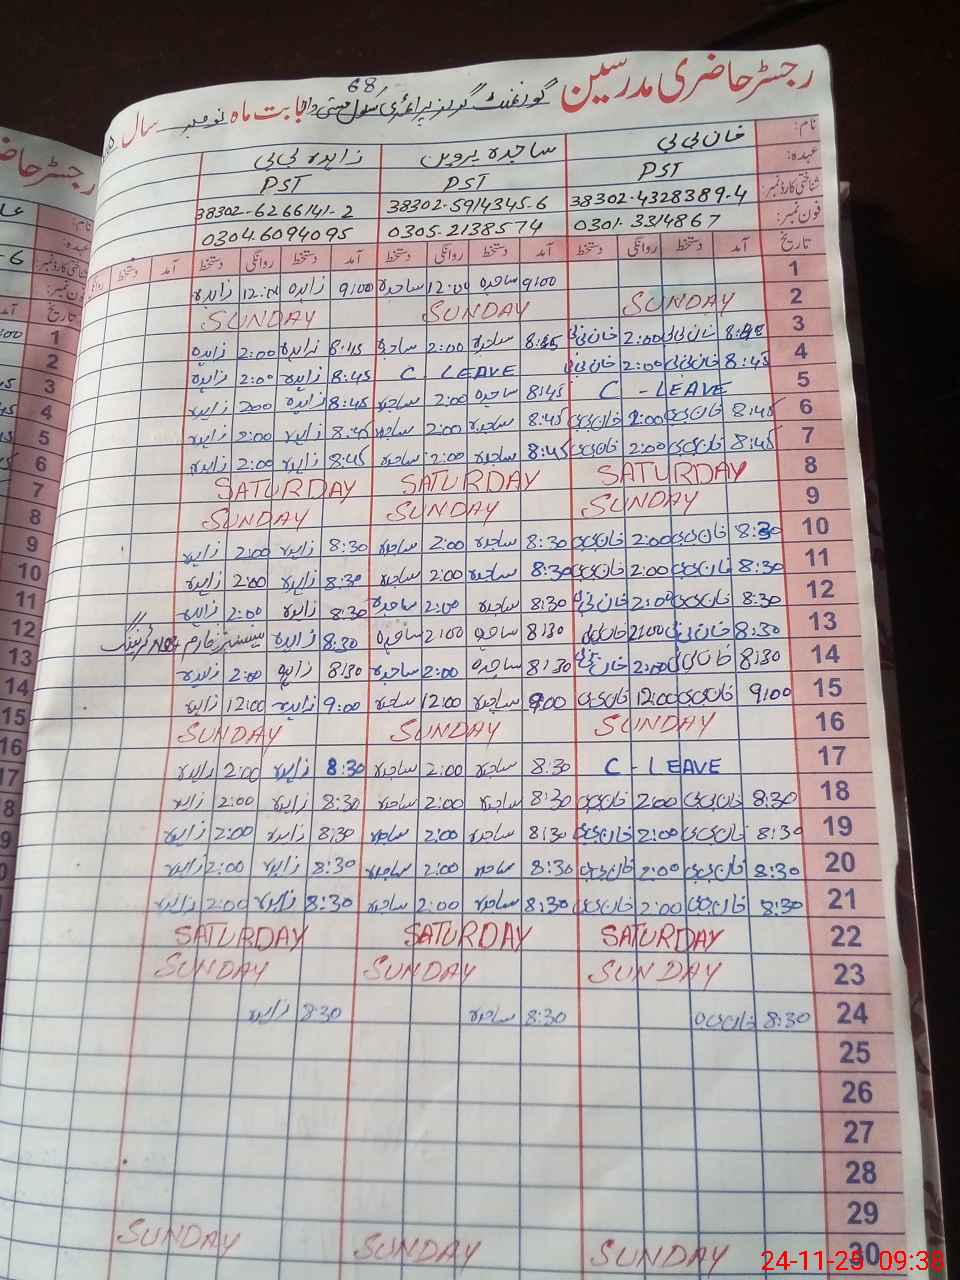 رجسٹر حاضری مدرسین گورنمنٹ گرلز پرائمری سکول بابت ماہ نومبر سال
68
نام: خان بی بی ساجدہ پروین زاہدہ بی بی
عہدہ: PST PST PST
شناختی کارڈ نمبر: 38302-4328389-4 38302-5914345-6 38302-6266141-2
فون نمبر: 0301-3314867 0305-2138574 0304-6094095
تاریخ آمد دستخط روانگی دستخط آمد دستخط روانگی دستخط آمد دستخط روانگی دستخط آمد دستخط
1 9:00 ساجدہ 12:00 ساجدہ 9:00 زاہدہ 12:00 زاہدہ
2 SUNDAY SUNDAY SUNDAY
3 خان بی بی 2:00 خان بی بی 8:45 ساجدہ 2:00 ساجدہ 8:45 زاہدہ 2:00 زاہدہ
4 8:45 خان بی بی 2:00 خان بی بی C LEAVE 8:45 زاہدہ 2:00 زاہدہ
5 C - LEAVE 8:45 ساجدہ 2:00 ساجدہ 8:45 زاہدہ 2:00 زاہدہ
6 8:45 خان بی بی 2:00 خان بی بی 8:45 ساجدہ 2:00 ساجدہ 8:45 زاہدہ 2:00 زاہدہ
7 8:45 خان بی بی 2:00 خان بی بی 8:45 ساجدہ 2:00 ساجدہ 8:45 زاہدہ 2:00 زاہدہ
8 SATURDAY SATURDAY SATURDAY
9 SUNDAY SUNDAY SUNDAY
10 8:30 خان بی بی 2:00 خان بی بی 8:30 ساجدہ 2:00 ساجدہ 8:30 زاہدہ 2:00 زاہدہ
11 8:30 خان بی بی 2:00 خان بی بی 8:30 ساجدہ 2:00 ساجدہ 8:30 زاہدہ 2:00 زاہدہ
12 8:30 خان بی بی 2:00 خان بی بی 8:30 ساجدہ 2:00 ساجدہ 8:30 زاہدہ 2:00 زاہدہ
13 8:30 خان بی بی 2:00 خان بی بی 8:30 ساجدہ 2:00 ساجدہ 8:30 زاہدہ
14 8:30 خان بی بی 2:00 خان بی بی 8:30 ساجدہ 2:00 ساجدہ 8:30 زاہدہ 2:00 زاہدہ
15 9:00 خان بی بی 12:00 خان بی بی 9:00 ساجدہ 12:00 ساجدہ 9:00 زاہدہ 12:00 زاہدہ
16 SUNDAY SUNDAY SUNDAY
17 C - LEAVE 8:30 ساجدہ 2:00 ساجدہ 8:30 زاہدہ 2:00 زاہدہ
18 8:30 خان بی بی 2:00 خان بی بی 8:30 ساجدہ 2:00 ساجدہ 8:30 زاہدہ 2:00 زاہدہ
19 8:30 خان بی بی 2:00 خان بی بی 8:30 ساجدہ 2:00 ساجدہ 8:30 زاہدہ 2:00 زاہدہ
20 8:30 خان بی بی 2:00 خان بی بی 8:30 ساجدہ 2:00 ساجدہ 8:30 زاہدہ 2:00 زاہدہ
21 8:30 خان بی بی 2:00 خان بی بی 8:30 ساجدہ 2:00 ساجدہ 8:30 زاہدہ 2:00 زاہدہ
22 SATURDAY SATURDAY SATURDAY
23 SUNDAY SUNDAY SUNDAY
24 8:30 خان بی بی 8:30 ساجدہ 8:30 زاہدہ
25
26
27
28
29
30 SUNDAY SUNDAY SUNDAY
24-11-25 09:38